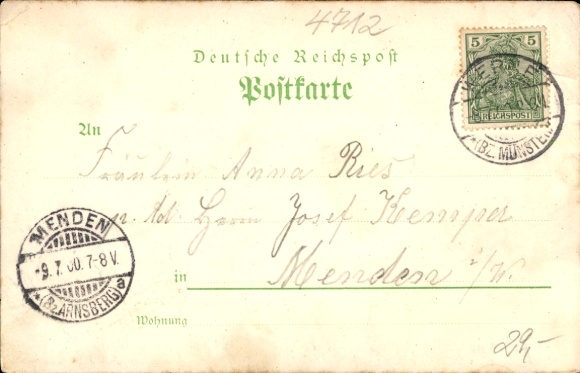 4712
Deutsche Reichspost
Postkarte
5 5
REICHSPOST
(BZ. MÜNSTER)
An
Fräulein Anna Ries
p. Ad. Herrn Josef Kemper
in Menden i/W.
MENDEN
-9.7.00.7-8V.
*(BZ.ARNSBERG) a
Wohnung
29,-